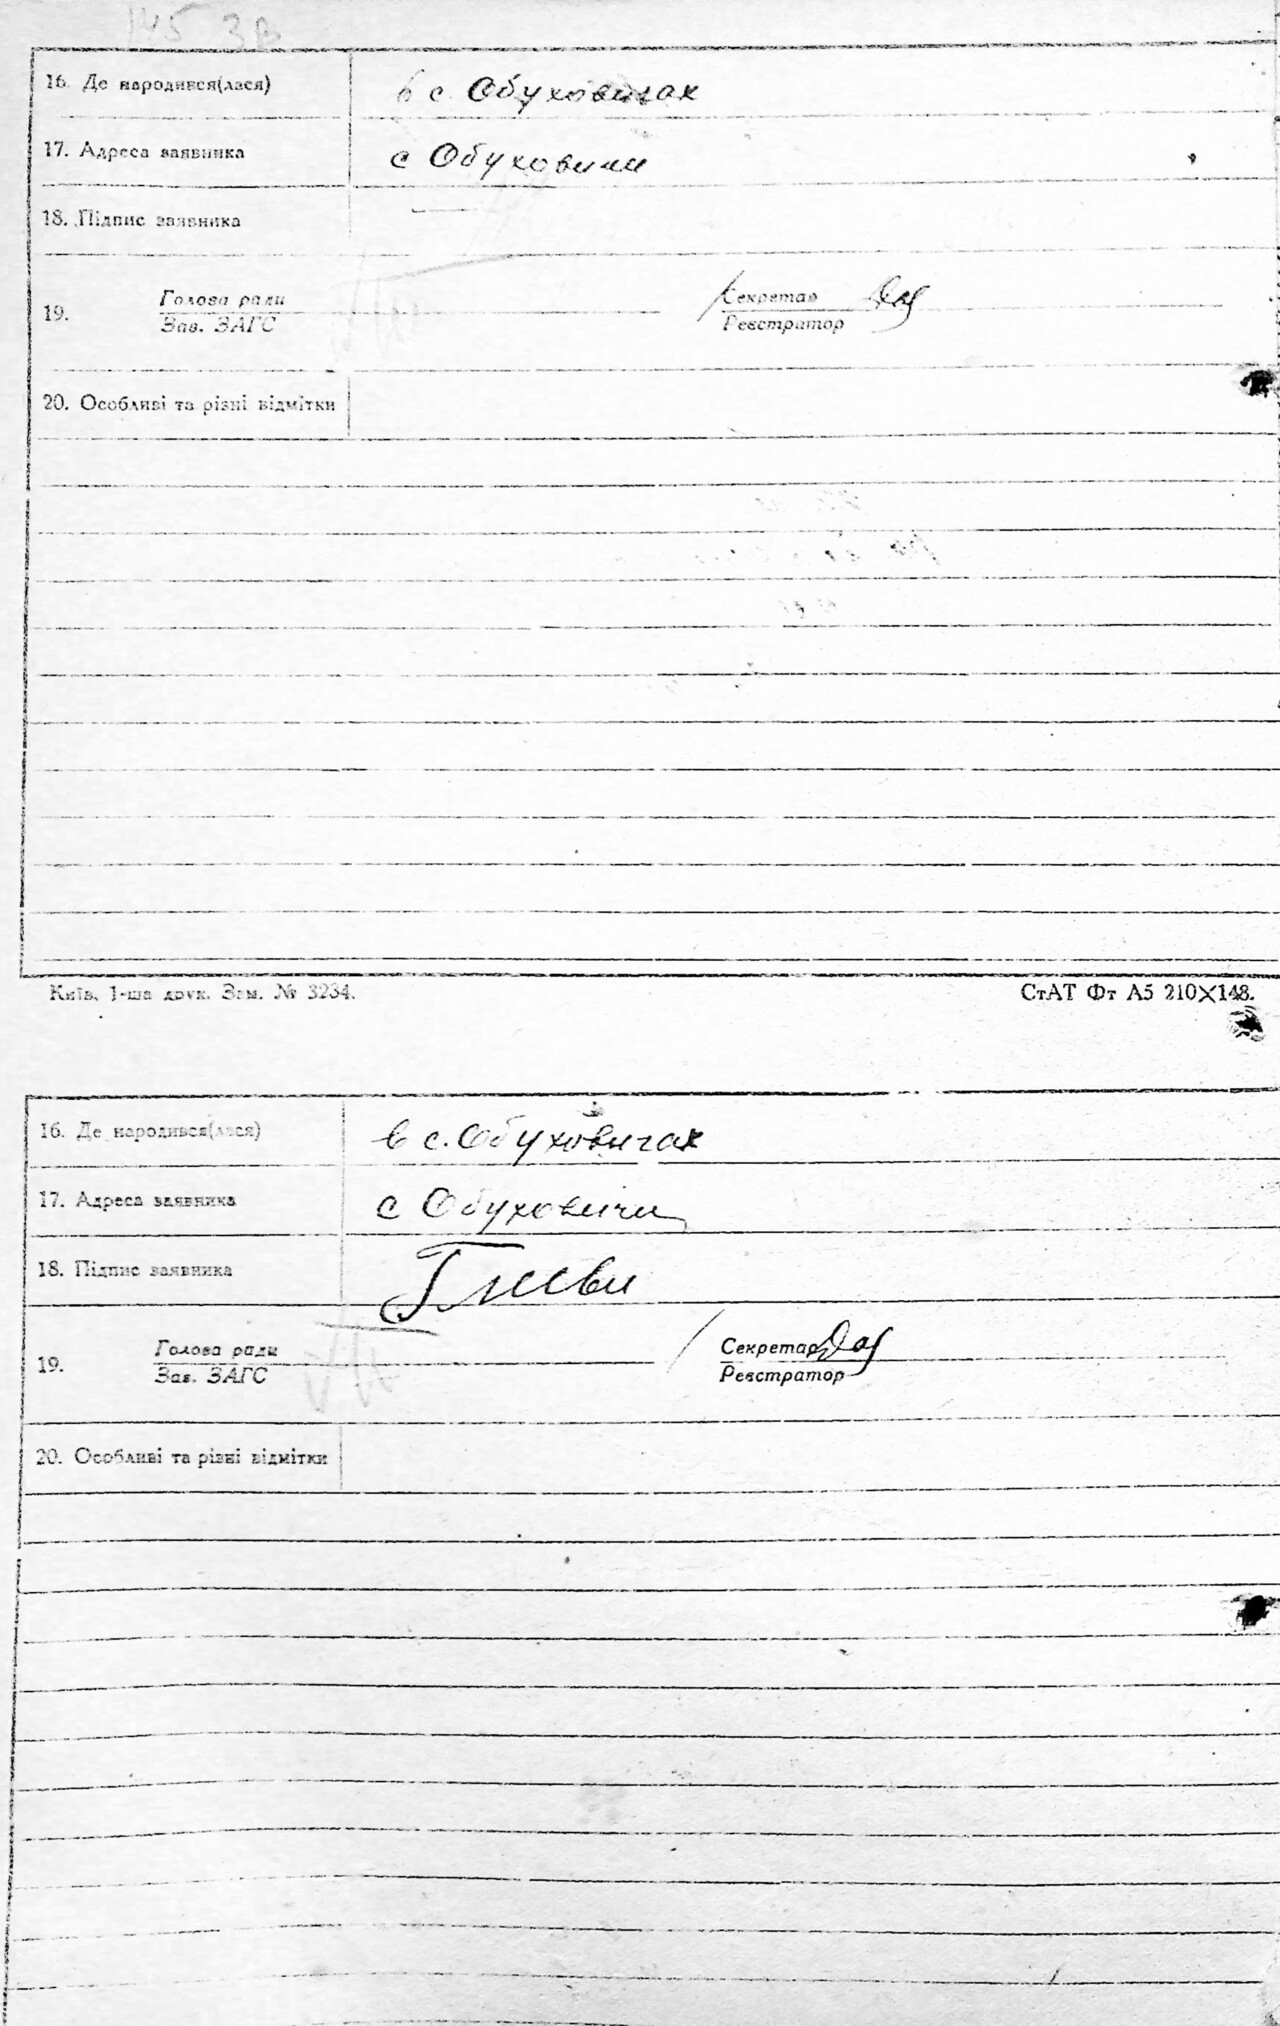 145 зв
16. Де народився(лася) в с. Обуховичах
17. Адреса заявника с Обуховичи
18. Підпис заявника —
19. Голова ради Секретар
Зав. ЗАГС Реєстратор
20. Особливі та різні відмітки
Київ, 1-ша друк. Зам. № 3234. СтАТ Фт А5 210×148.
16. Де народився(лася) в с. Обуховичах
17. Адреса заявника с Обуховичи
18. Підпис заявника
19. Голова ради Секретар
Зав. ЗАГС Реєстратор
20. Особливі та різні відмітки